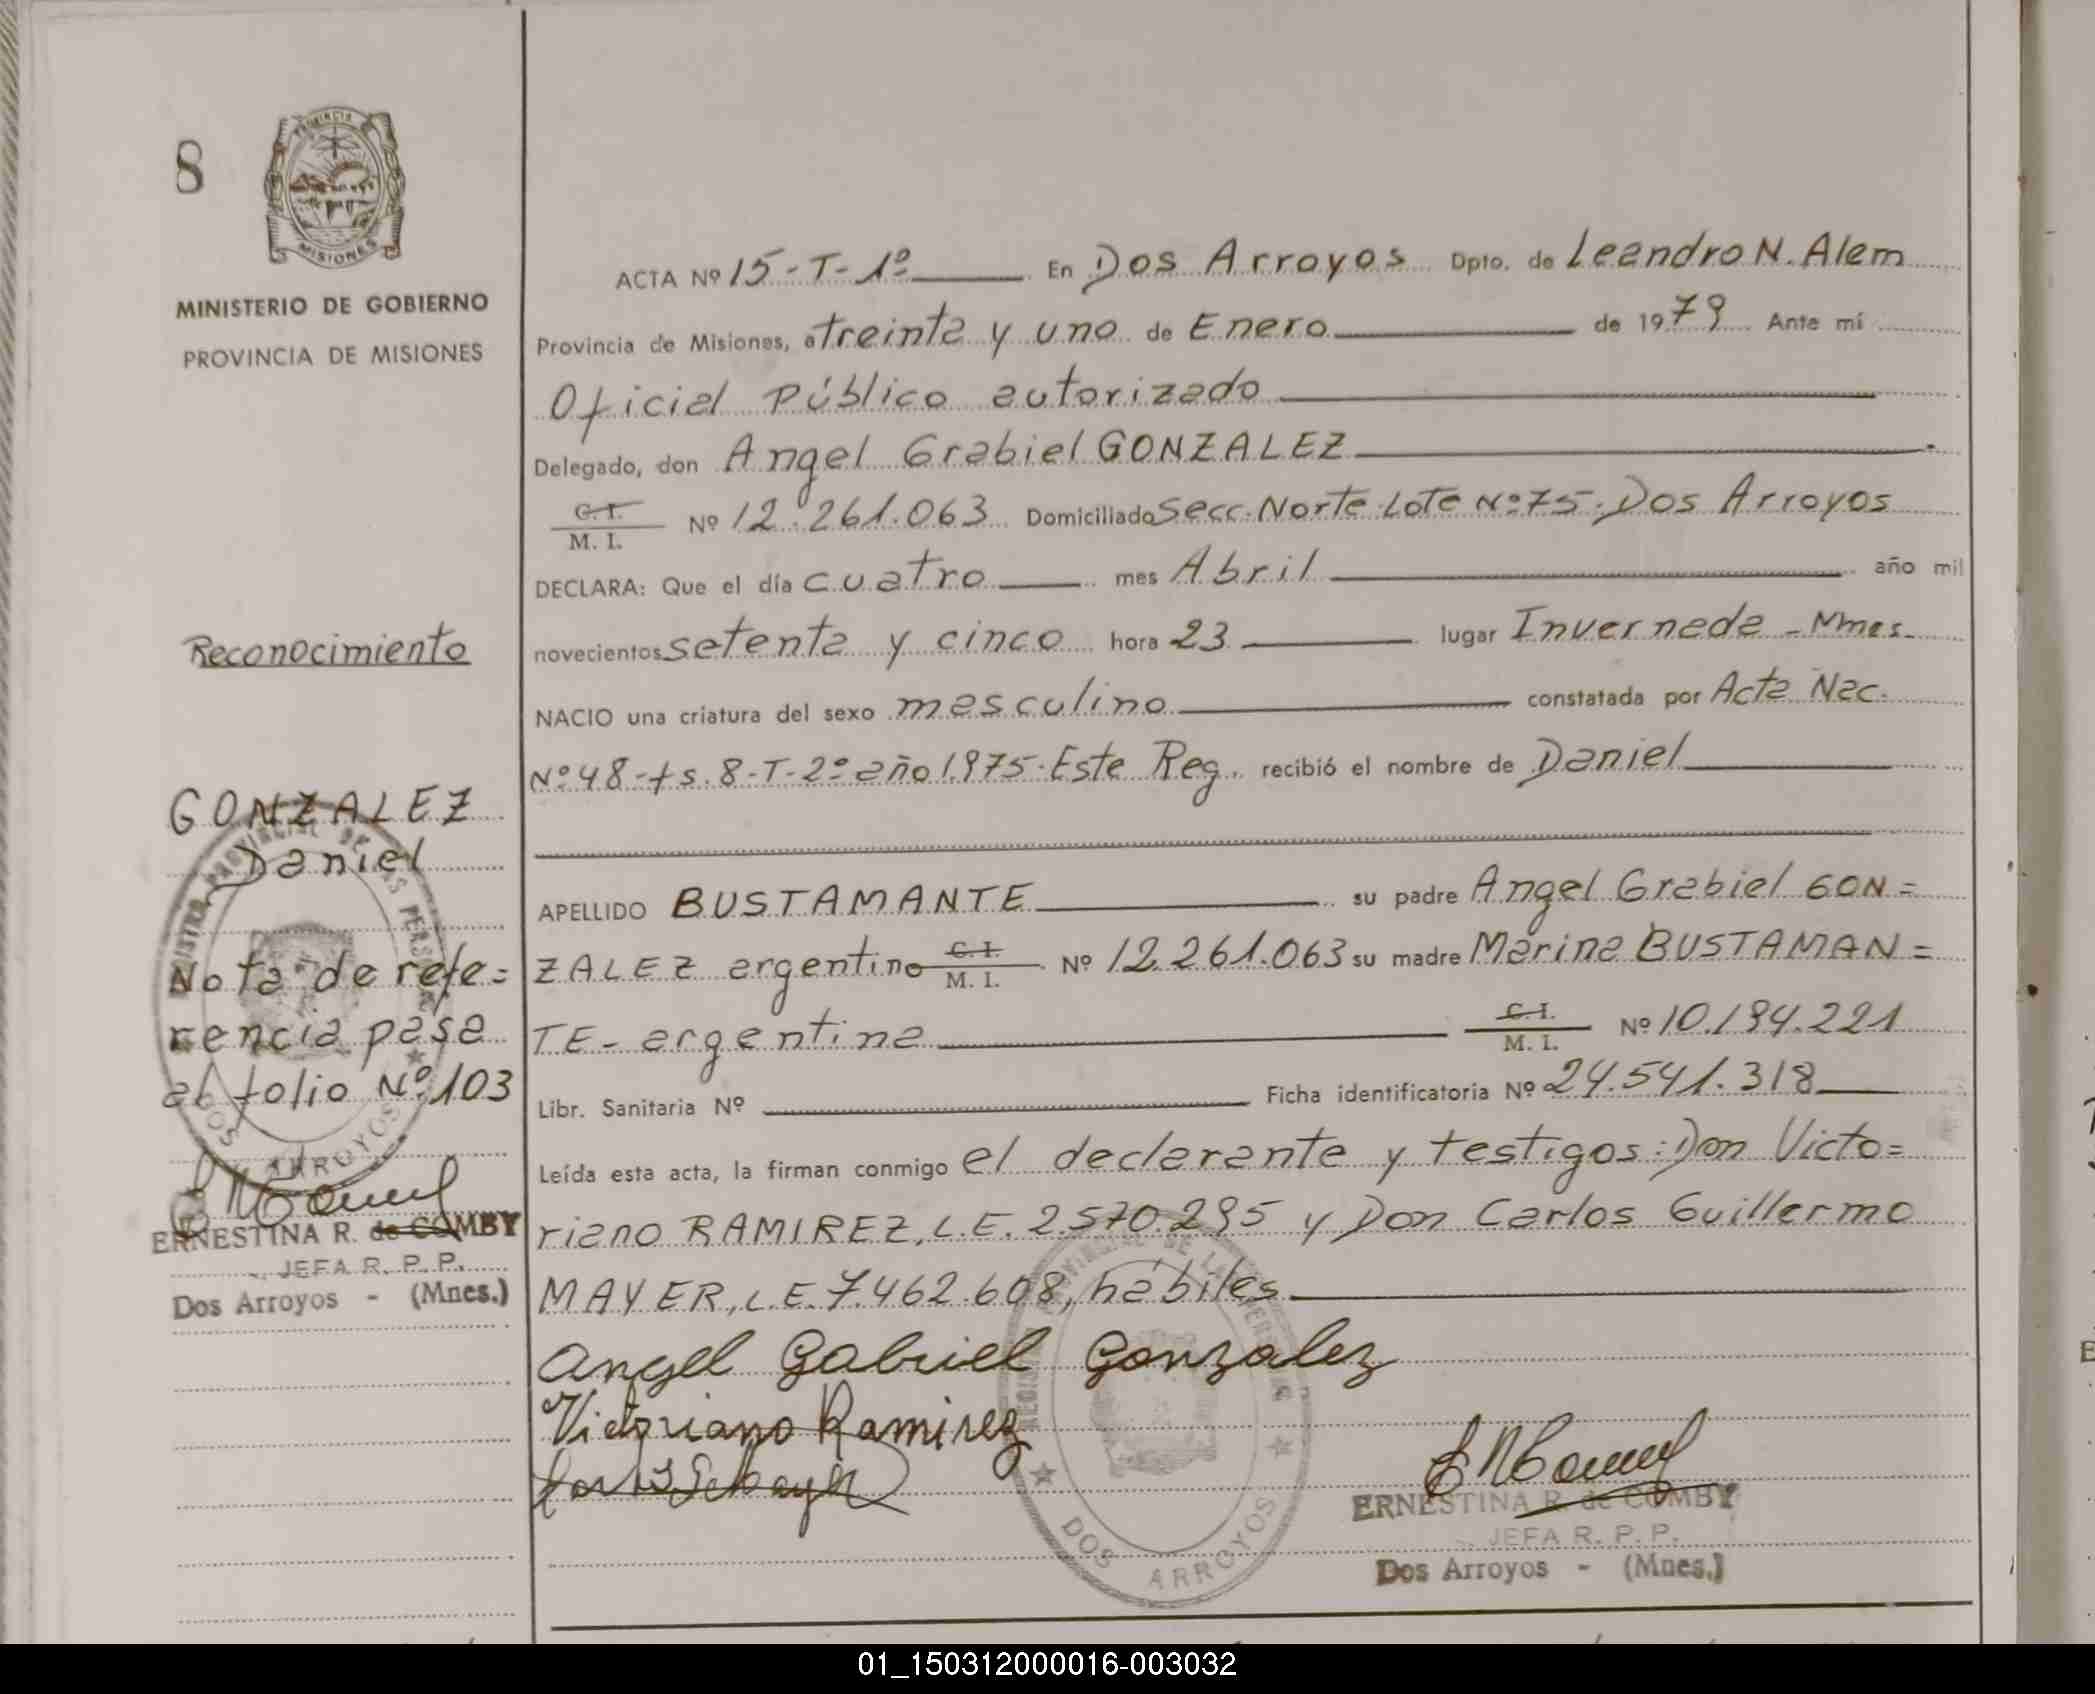 8
PROVINCIA
MISIONES
MINISTERIO DE GOBIERNO
PROVINCIA DE MISIONES
Reconocimiento
GONZALEZ
Daniel
Nota de refe=
rencia pasa
al folio Nº 103
ERNESTINA R. de COMBY
JEFA R. P. P.
Dos Arroyos - (Mnes.)
ACTA Nº 15-T-1º En Dos Arroyos Dpto. de Leandro N. Alem
Provincia de Misiones, a treinta y uno de Enero de 1979 Ante mí
Oficial Público autorizado
Delegado, don Angel Grabiel GONZALEZ
C. I.
M. I. Nº 12.261.063 Domiciliado Secc. Norte Lote Nº 75. Dos Arroyos
DECLARA: Que el día cuatro mes Abril año mil
novecientos setenta y cinco hora 23 lugar Invernada - Mnes.
NACIO una criatura del sexo masculino constatada por Acta Nac.
Nº 48-fs. 8-T-2º año 1975. Este Reg. recibió el nombre de Daniel
APELLIDO BUSTAMANTE su padre Angel Grabiel GON=
ZALEZ argentino C. I. M. I. Nº 12.261.063 su madre Marina BUSTAMAN=
TE - argentina C. I. M. I. Nº 10.194.221
Libr. Sanitaria Nº Ficha identificatoria Nº 24.541.318
Leída esta acta, la firman conmigo el declarante y testigos: Don Victo=
riano RAMIREZ, L.E. 2.570.295 y Don Carlos Guillermo
MAYER, L.E. 7.462.608, hábiles
Angel Gabriel Gonzalez
Victoriano Ramirez
REGISTRO PROVINCIAL DE LAS PERSONAS
DOS ARROYOS
ERNESTINA R. de COMBY
JEFA R. P. P.
Dos Arroyos - (Mnes.)
01_150312000016-003032